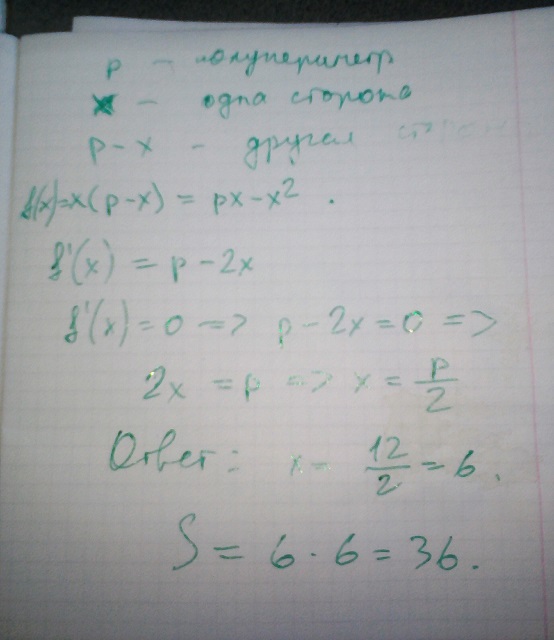 p - полупериметр
x - одна сторона
p-x - другая сторона
f(x)=x(p-x) = px-x².
f'(x) = p-2x
f'(x)=0 => p-2x=0 =>
2x = p => x = p/2
Ответ: x = 12/2 = 6.
S = 6·6=36.